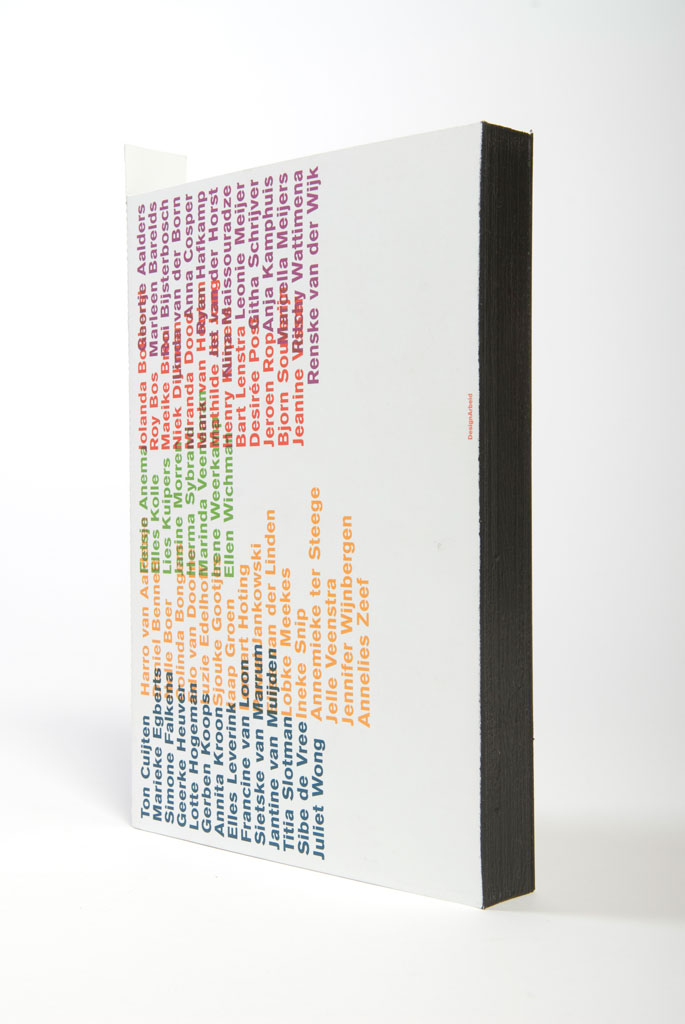 Ton Cuijten
Marieke Egberts
Simone Falkena
Geerke Heuver
Lotte Hogeman
Gerben Koops
Annita Kroon
Elles Leverink
Francine van Loon
Sietske van Marrum
Jantine van Muijden
Titia Slotman
Sibe de Vree
Juliet Wong
Harro van
Boer
van
Suzie
Sjouke
Jaap Groen
Hoting
Jankowski
van der Linden
Lobke Meekes
Ineke Snip
Annemieke ter Steege
Jelle Veenstra
Jennifer Wijnbergen
Annelies Zeef
Fetsje Anema
Elles Kolle
Lies Kuipers
Janine Morren
Herma
Marinda Veerman
Irene Weerkamp
Ellen Wichman
Jolanda
Roy Bos
Maeike
Niek
Miranda
Mark van
Mathilde
Henry
Bart Lenstra
Desirée Post
Jeroen Rop
Bjorn
Jeanine
Aalders
Marleen Barelds
Roi Bijsterbosch
Linda van der Born
Anna Cosper
Ryan Hafkamp
Jet van der Horst
Nina Maissouradze
Leonie Meijer
Githa Schrijver
Anja Kamphuis
Marcella Meijers
Wattimena
Renske van der Wijk
DesignArbeid